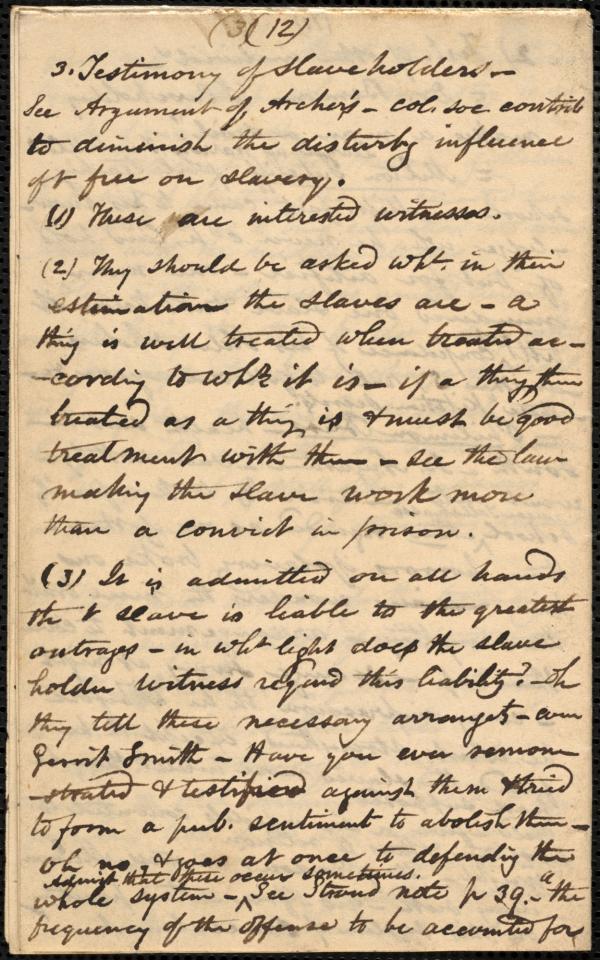 (3 (12)
3. Testimony of slaveholders -
See Argument of Archer's - col. soc contrib
to diminish the disturbg influence
of t free on slavery.
(1) These are interested witnesses.
(2) They should be asked wht. in their
estimation the slaves are - a
thing is well treated when treated ac-
-cording to wht it is - if a thing then
treated as a thing is & must be good
treatment with them - see the law
making the slave work more
than a convict in prison.
(3) It is admitted on all hands
tht t slave is liable to the greatest
outrages - in wht light does the slave
holder witness regard this liability? - Oh
they tell these necessary arrangets - even
Gerrit Smith - Have you ever remon
-strated & testified against them & tried
to form a pub. sentiment to abolish them -
oh no, & goes at once to defending the
Admit that these occur sometimes.
whole system - ^ See Stroud note p 39. - "the
frequency of the offense to be accounted for